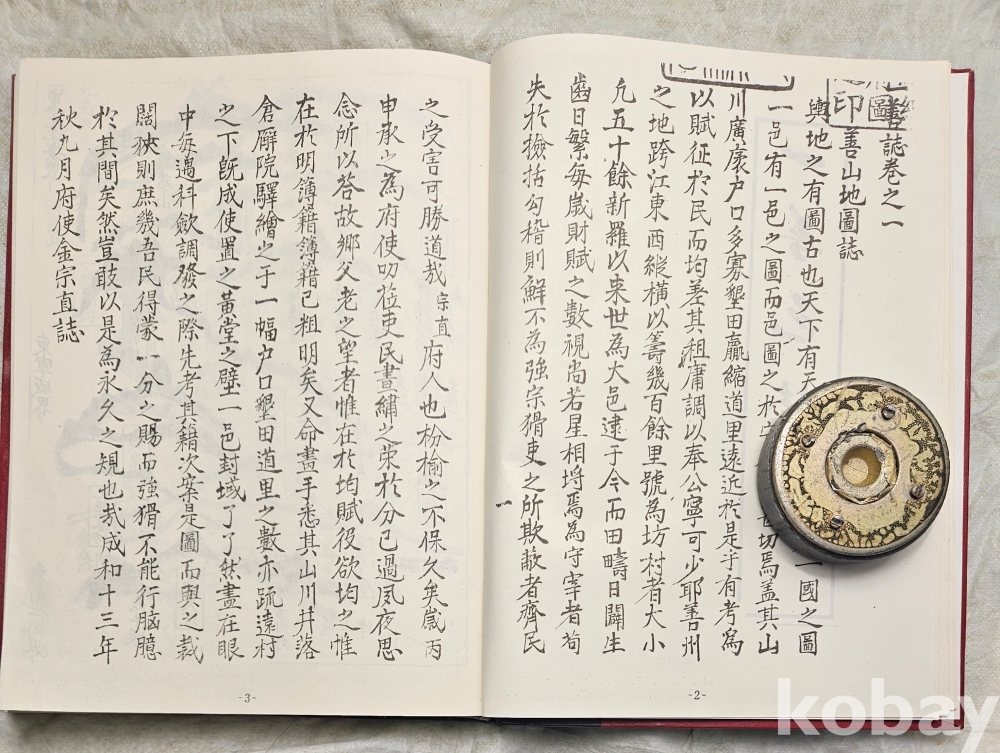 一善誌卷之一
圖
印
善山地圖誌
輿地之有圖古也天下有天 一國之圖
一邑有一邑之圖而邑圖之於 切焉盖其山
川廣廣户口多寡墾田贏縮道里遠近於是乎有考焉
以賦征於民而均差其租庸調以奉公寧可少耶善州
之地跨江東西縱橫以籌幾百餘里號為坊村者大小
凢五十餘新羅以来世為大邑逮于今而田疇日闢生
齒日繁每歲財賦之數視尚若星相将焉為守宰者苟
失於撿括勾稽則鮮不為強宗猾吏之所欺蔽者齊民
-2-
之受害可勝道㢤宗直府人也枌榆之不保久矣歲丙
申承之為府使叨莅吏民晝繡之荣於分已過夙夜思
念所以荅故鄉父老之望者惟在於均賦役欲均之惟
在於明簿籍簿籍已粗明矣又命畫手悉其山川井落
倉廨院驛繪之于一幅户口墾田道里之數亦疏遠村
之下旣成使置之黃堂之壁一邑封域了了然盡在眼
中每遇科歛調發之際先考其籍次案是圖而與之裁
闊狹則庶幾吾民得蒙一分之賜而強猾不能行脳臆
於其間矣然豈敢以是為永久之規也㢤成和十三年
秋九月府使金宗直誌
-3-
kobay